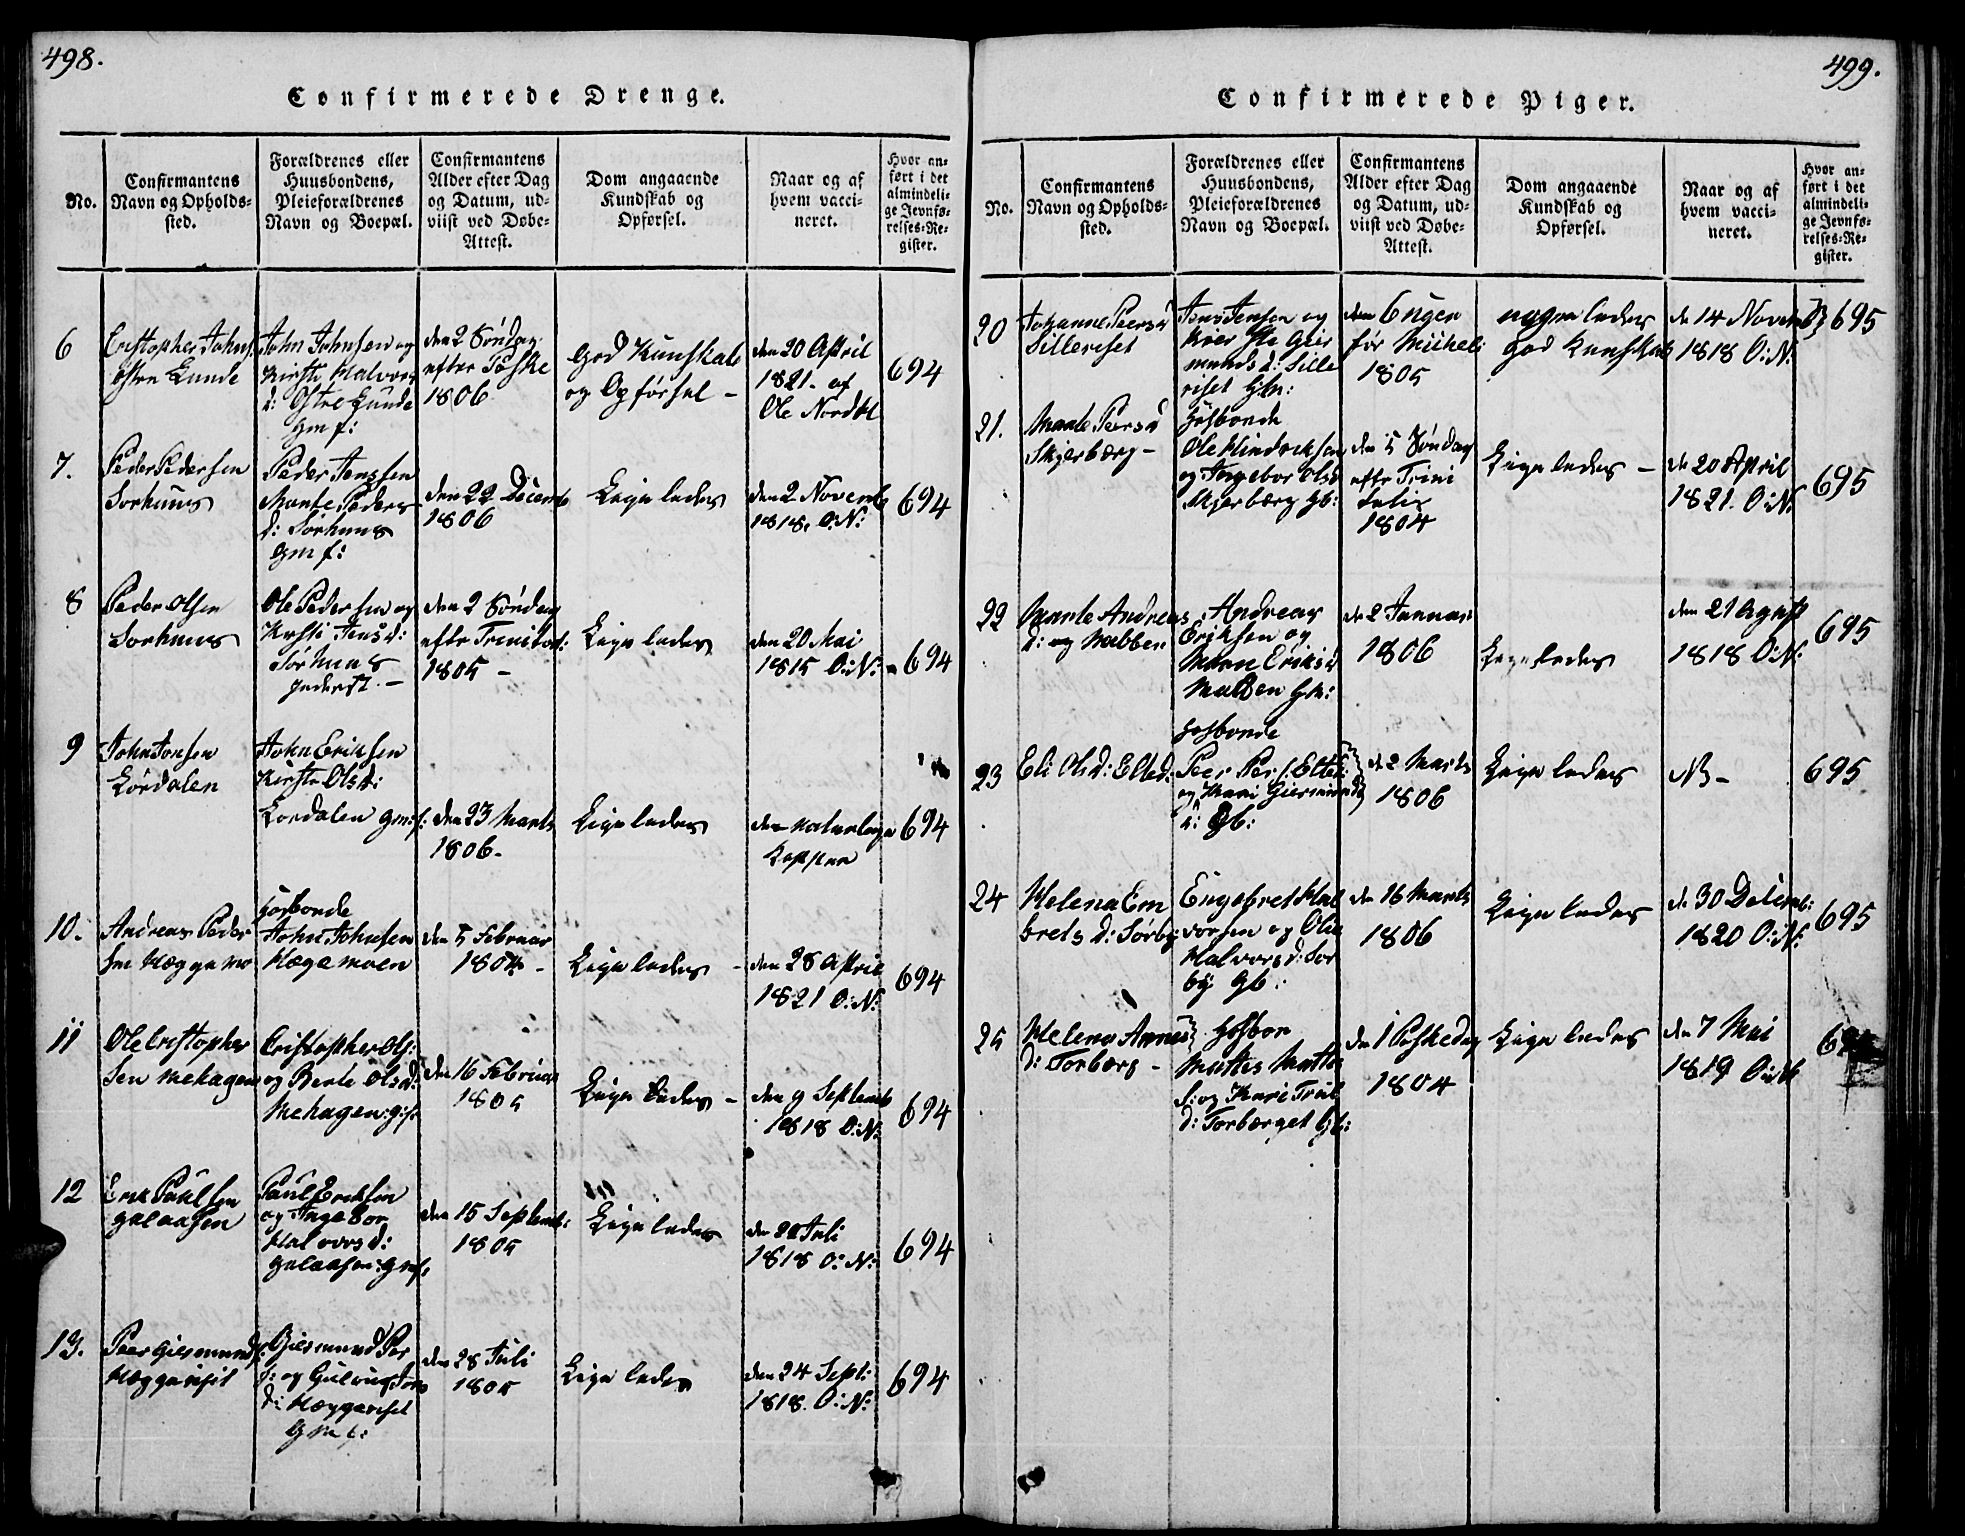 498.
Confirmerede Drenge.
No.
Confirmantens
Navn og Opholds-
sted.
Forældrenes eller
Huusbondens,
Pleieforældrenes
Navn og Boepæl.
Confirmantens
Alder efter Dag
og Datum, ud-
viist ved Døbe-
Attest.
Dom angaaende
Kundskab og
Opførsel.
Naar og af
hvem vacci-
neret.
Hvor an-
ført i det
almindeli-
ge Jevnfø-
relses-Re-
gister.
6
Cristopher Johns:
Østre Lunde
John Johnsen og
Kirsti Halvors
d: Østre Lunde
gmf:
den 2 Søndag
efter Paske
1806
God Kunskab
og Opførsel -
den 20 April
1821. af
Ole Nordbl
694
7.
Peder Pedersen
Sorhuus
Peder Jenssen
Marte Peders
d: Sorhuus
gmf:
den 22 Decemb
1806
Ligeledes
den 2 Novemb
1818. O:N:
694
8
Peder Olsen
Sorhuus
Ole Pedersen og
Kirsti Jens d:
Sørhuus
Inderst. -
den 2 Søndag
efter Trinitat:
1805 -
Ligeledes
den 20 Mai
1815 O:N:
694
9
John Jonsen
Lørdalen
John Eriksen
Kirsti Ols d:
Lordalen gmf:
den 23 Marts
1806-
Ligeledes
den naturlige
Kopper
694
10.
Andreas Peder
sen Hæggemo
Hosbonde
John Johnsen
Hægemoen
den 5 Februar
1804 -
Ligeledes -
den 28 April
1821 O:N:
694
11
Ole Cristopher
sen Mehagen
Cristopher Ols:
og Berte Ols d:
Mehagen: gf:
den 16 Februar
1805
Ligeledes -
den 9 Septemb
1818 O:N:
694
12
Erik Paulsen
Galaasen
Paul Eriksen
og Ingebor
Halvors d:
Galaasen: gmf:
den 15 Septemb:
1805
Ligeledes
den 20 Juli
1818 O:N:
694
13.
Peer Giermunds:
Hæggeriset
Giermund Per
s: og Gulaug Jons
d: Hæggeriset
Gmf:
den 28 Juli
1805
Ligeledes
den 24 Sept:
1818. O:N:
694
499.
Confirmerede Piger.
No.
Confirmantens
Navn og Opholds-
sted.
Forældrenes eller
Huusbondens,
Pleieforældrenes
Navn og Boepæl.
Confirmantens
Alder efter Dag
og Datum, ud-
viist ved Døbe-
Attest.
Dom angaaende
Kundskab og
Opførsel.
Naar og af
hvem vacci-
neret.
Hvor an-
ført i det
almindeli-
ge Jevnfø-
relses-Re-
gister.
20
Johanne Peers d
Silleriset
Jens Jensen og
Geir
munds d: Sille
riset
den 6 ugen
før Micheli
1805
ledes
god Kunskab
de 14 Novemb
1818 O:N.
695
21.
Marte Peers d
Skjerbærg -
Hosbonde
Ole Hindricksen
og Ingebor Ols d
Skjerbærg Gb:
den 5 Søndag
efter Trini
tatis
1804
Ligeledes -
de 20 April
1821. O:N.
695
22
Marte Andreas
d: og Mabben
Andreas
Eriksen og
Maren Eriks d
Mabben
de 2 Januar
1806
Ligeledes
den 21 Agust
1818 O:N:
695
23
Eli Ols d: Elted:
Hosbonde
Peer Per s: Elted:
og Kari Giermunds
d: Gb:
de 2 Marts
1806
Ligeledes
NB -
695
24
Helena Em
brets d: Sorby
Engebret Hal
vorsen og Olia
Halvors d: Sor
by Gb:
de 16 Marts
1806
Ligeledes
de 30 Decemb:
1820 O:N:
695
25
Helena Arnes
d: Torbærg -
Hosbon
Mattis Mattis
s: og Kari Trul
d: Torbærget Gb:
den 1 Paskedag
1804
Ligeledes
den 7 Mai
1819 O:N